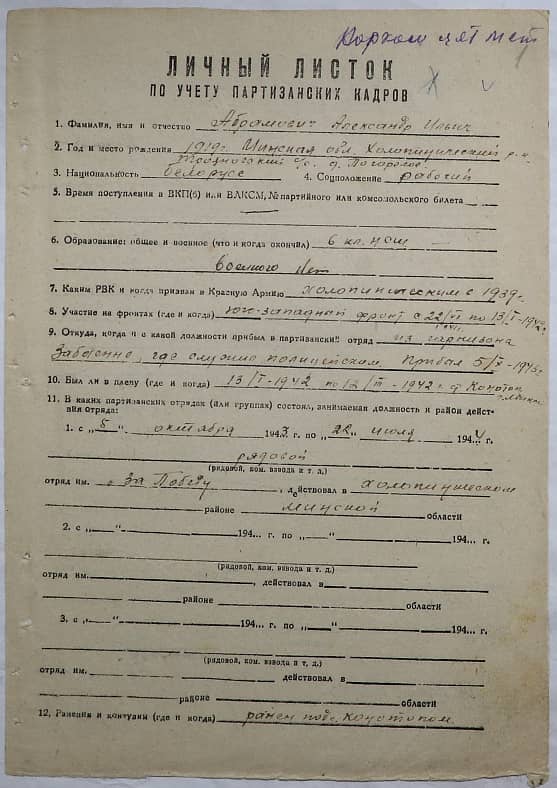 ЛИЧНЫЙ ЛИСТОК
ПО УЧЕТУ ПАРТИЗАНСКИХ КАДРОВ
1. Фамилия, имя и отчество Абрамович Александр Ильич
2. Год и место рождения 1919г. Минская обл. Холопиничский р-н
с/с. д. Погорелое
3. Национальность белорусс 4. Соцположение рабочий
5. Время поступления в ВКП(б) или ВЛКСМ, № партийного или комсомольского билета
6. Образование: общее и военное (что и когда окончил) 6 кл. НСШ
военного нет
7. Каким РВК и когда призван в Красную Армию Холопиническим с 1939г.
8. Участие на фронтах (где и когда) Юго-западный фронт с 22/VI по 13/I-1942г.
9. Откуда, когда и с какой должности прибыл в партизанский отряд из гарнизона
где служил полицейским. Прибыл 5/X-1943г.
10. Был ли в плену (где и когда) 13/I-1942 по 12/III-1942г. г. Конотоп
11. В каких партизанских отрядах (или группах) состоял, занимаемая должность и район дейст-
вия Отряда:
1. с „5" октября 1943 г. по „22" июля 1944 г.
рядовой
(рядовой, ком. взвода и т. д.)
отряд им. „За Победу, действовал в Холопиническом
районе Минской области
2. с „ " 194... г. по „ " 194... г.
(рядовой, ком. взвода и т. д.)
отряд им. , действовал в
районе области
3. с „ " 194... г. по „ " 194... г.
(рядовой, ком. взвода и т. д.)
отряд им. действовал в
районе области
12. Ранения и контузии (где и когда) ранен под Конотопом.